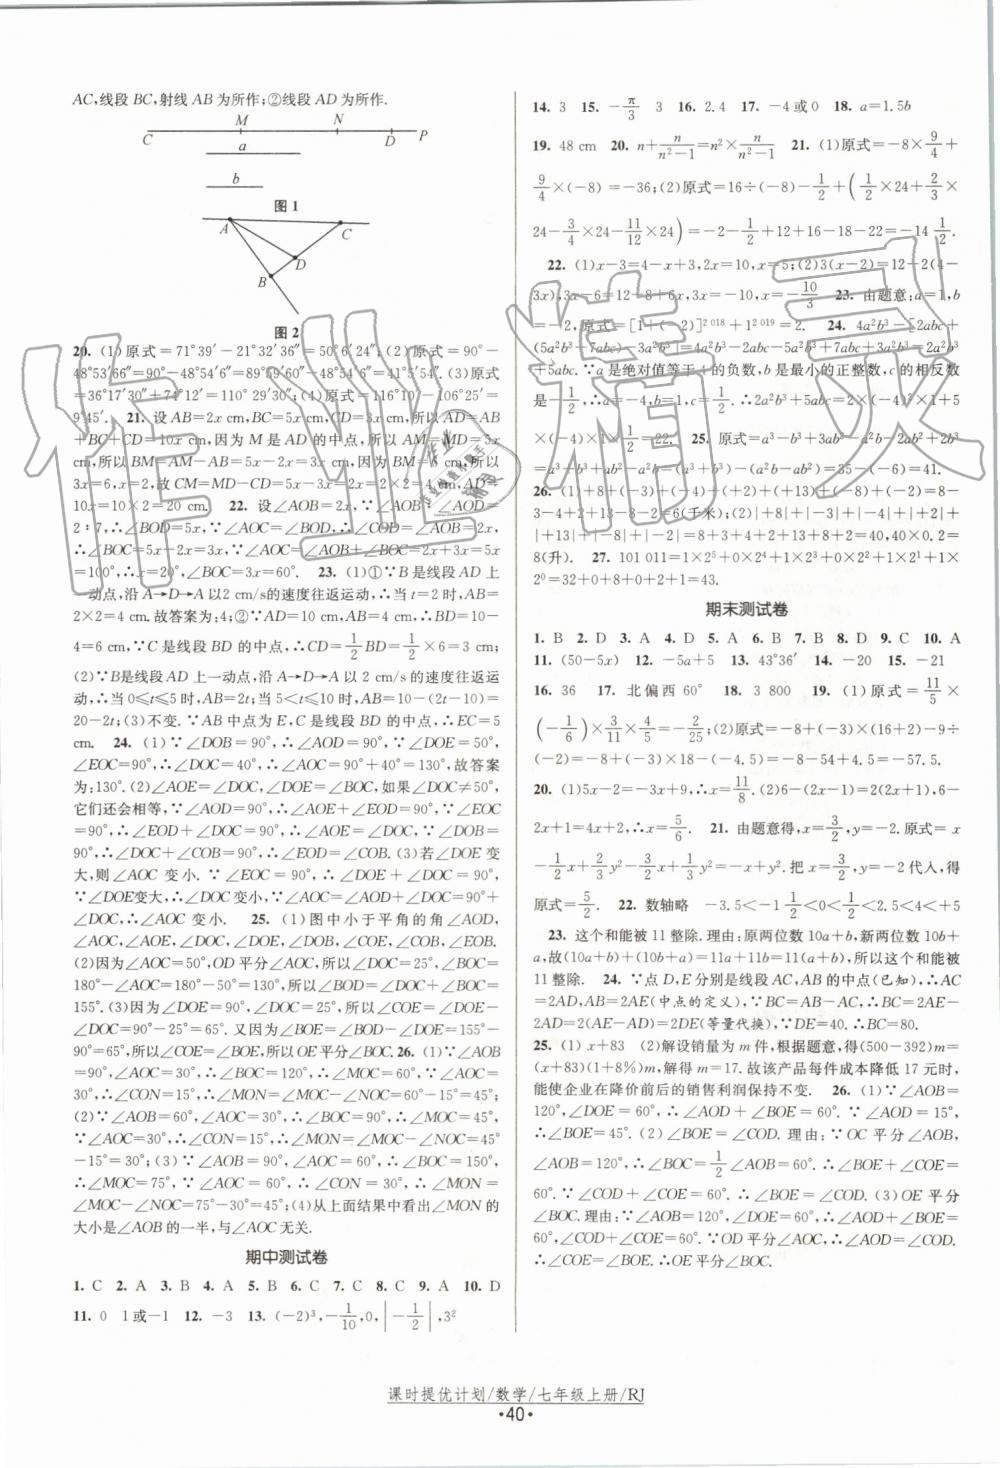 AC,线段 BC,射线 AB 为所作;②线段 AD 为所作.
C M N D P
a
b
图 1
A C
D
B
图 2
20. (1)原式=71°39′-21°32′36″=50°6′24″;(2)原式=90°-
48°53′66″=90°-48°54′6″=89°59′60″-48°54′6″=41°5′54″. (3)原式
=36°17′30″+74°12′=110°29′30″;(4)原式=116°10′-106°25′=
9°45′. 21. 设 AB=2x cm,BC=5x cm,CD=3x cm,所以 AD=AB
+BC+CD=10x cm,因为 M 是 AD 的中点,所以 AM=MD=5x
cm,所以 BM=AM-AB=5x-2x=3x cm. 因为 BM=6 cm,所以
3x=6,x=2,故 CM=MD-CD=5x-3x=2x=2×2=4 cm,AD=
10x=10×2=20 cm. 22. 设∠AOB=2x,∵∠AOB∶∠AOD=
2∶7,∴∠BOD=5x,∵∠AOC=∠BOD,∴∠COD=∠AOB=2x,
∴∠BOC=5x-2x=3x,∵∠AOC=∠AOB+∠BOC=2x+3x=5x
=100°,∴x=20°,∠BOC=3x=60°. 23. (1)①∵B 是线段 AD 上
一动点,沿 A→D→A 以2 cm/s的速度往返运动,∴当 t=2 时,AB=
2×2=4 cm. 故答案为:4;②∵AD=10 cm,AB=4 cm,∴BD=10-
4=6 cm,∵C 是线段 BD 的中点,∴CD=1/2BD=1/2×6=3 cm;
(2)∵B是线段 AD 上一动点,沿 A→D→A 以 2 cm/s 的速度往返运
动,∴当 0≤t≤5 时,AB=2t;当 5<t≤10 时,AB=10-(2t-10)=
20-2t;(3)不变. ∵AB 中点为 E,C 是线段 BD 的中点,∴EC=5
cm. 24. (1)∵∠DOB=90°,∴∠AOD=90°,∵∠DOE=50°,
∠EOC=90°,∴∠DOC=40°,∴∠AOC=90°+40°=130°,故答案
为:130°.(2)∠AOE=∠DOC,∠DOE=∠BOC,如果∠DOC≠50°,
它们还会相等,∵∠AOD=90°,∴∠AOE+∠EOD=90°,∵∠EOC
=90°,∴∠EOD+∠DOC=90°,∴∠AOE=∠DOC,∵∠DOB=
90°,∴∠DOC+∠COB=90°,∴∠EOD=∠COB.(3)若∠DOE变
大,则∠AOC 变小. ∵∠EOC=90°,∴∠DOE+∠DOC=90°,
∵∠DOE变大,∴∠DOC 变小,∵∠AOC=∠AOD+∠DOC=90°
+∠DOC,∴∠AOC 变小. 25. (1)图中小于平角的角∠AOD,
∠AOC,∠AOE,∠DOC,∠DOE,∠DOB,∠COE,∠COB,∠EOB.
(2)因为∠AOC=50°,OD 平分∠AOC,所以∠DOC=25°,∠BOC=
180°-∠AOC=180°-50°=130°,所以∠BOD=∠DOC+∠BOC=
155°.(3)因为∠DOE=90°,∠DOC=25°,所以∠COE=∠DOE-
∠DOC=90°-25°=65°. 又因为∠BOE=∠BOD-∠DOE=155°-
90°=65°,所以∠COE=∠BOE,所以OE平分∠BOC. 26. (1)∵∠AOB
=90°,∠AOC=30°,∴∠BOC=120°,∴∠MOC=60°,∵∠AOC=
30°,∴∠CON=15°,∴∠MON=∠MOC-∠NOC=60°-15°=45°;
(2)∵∠AOB=60°,∠AOC=30°,∴∠BOC=90°,∴∠MOC=45°,
∵∠AOC=30°,∴∠CON=15°,∴∠MON=∠MOC-∠NOC=45°
-15°=30°;(3)∵∠AOB=90°,∠AOC=60°,∴∠BOC=150°,
∴∠MOC=75°,∵∠AOC=60°,∴∠CON=30°,∴∠MON=
∠MOC-∠NOC=75°-30°=45°;(4)从上面结果中看出∠MON的
大小是∠AOB的一半,与∠AOC无关.
期中测试卷
1. C 2. A 3. B 4. A 5. B 6. C 7. C 8. C 9. A 10. D
11. 0 1或-1 12. -3 13. (-2)³,-1/10,0,|-1/2|,3²
14. 3 15. -π/3 3 16. 2.4 17. -4或0 18. a=1.5b
19. 48 cm 20. n+n/(n²-1)=n²×n/(n²-1) 21. (1)原式=-8×9/4+
9/4×(-8)=-36;(2)原式=16÷(-8)-1/2+(1/2×24+2/3×
24-3/4×24-11/12×24)=-2-1/2+12+16-18-22=-14 1/2.
22. (1)x-3=4-x+3,2x=10,x=5;(2)3(x-2)=12-2(4-
3x),3x-6=12-8+6x,3x=-10,x=-10/3 23. 由题意:a=1,b
=-2,原式=[1+(-2)]²⁰¹⁸+1²⁰¹⁹=2. 24. 4a²b³-[2abc+
(5a²b³-7abc)-3abc]=4a²b³-2abc-5a²b³+7abc+3abc-a²b³
+5abc. ∵a 是绝对值等于 4 的负数,b 是最小的正整数,c 的相反数
是-1/2,∴a=-4,b=1,c=1/2,∴2a²b³+5abc=2×(-4)²×1+5
×(-4)×1×1/2=22. 25. 原式=a³-b³+3ab²-a²b-2ab²+
2a²b=a³-b³+(a²b+ab²)=(a³-b³)-(2ab²-a²b)=35-(-6)=41.
26. (1)+8+(-3)+(-4)+2+(-8)+13+(-2)=8-
3-4+2-8+13-2=6(千米);(2)|+8|+|-3|+|-4|+|
+2|+|-8|+|+13|+|-2|=8+3+4+2+8+13+2=40,40×0.2=
8(升). 27. 101 011=1×2⁵+0×2⁴+1×2³+0×2²+1×2¹+1×
2⁰=32+0+8+0+2+1=43.
期末测试卷
1. B 2. D 3. A 4. D 5. A 6. B 7. B 8. D 9. C 10. A
11. (50-5x) 12. -5a+5 13. 43°36′ 14. -20 15. -21
16. 36 17. 北偏西 60° 18. 3 800 19. (1)原式=11/5×
(-1/6)×3/11×4/5=-2/25;(2)原式=-8+(-3)×(16+2)-9÷
(-2)=-8+(-3)×18-(-4.5)=-8-54+4.5=-57.5.
20. (1)5x-2=-3x+9,∴x=11/8. (2)6-(2x-1)=2(2x+1),6-
2x+1=4x+2,∴x=5/6. 21. 由题意得,x=3/2,y=-2. 原式=x
-1/2x+2/3y²-3/2x+1/3y²=-x+y². 把 x=3/2,y=-2 代入,得
原式=5/2. 22. 数轴略 -3.5<-1 1/2<0<1/2<2.5<4<+5
23. 这个和能被 11 整除. 理由:原两位数 10a+b,新两位数 10b+
a,故(10a+b)+(10b+a)=11a+11b=11(a+b),所以这个和能被
11 整除. 24. ∵点 D,E 分别是线段 AC,AB 的中点(已知),∴AC
=2AD,AB=2AE(中点的定义),∵BC=AB-AC,∴BC=2AE-
2AD=2(AE-AD)=2DE(等量代换),∵DE=40. ∴BC=80.
25. (1) x+83 (2)解设销量为 m 件,根据题意,得(500-392)m=
(x+83)(1+8%)m,解得 m=17. 故该产品每件成本降低 17 元时,
能使企业在降价前后的销售利润保持不变. 26. (1)∵∠AOB=
120°,∠DOE=60°,∴∠AOD+∠BOE=60°. ∵∠AOD=15°,
∴∠BOE=45°. (2)∠BOE=∠COD. 理由:∵OC 平分∠AOB,
∠AOB=120°,∴∠BOC=1/2∠AOB=60°. ∴∠BOE+∠COE=
60°. ∵∠COD+∠COE=60°,∴∠BOE=∠COD. (3)OE 平分
∠BOC. 理由:∵∠AOB=120°,∠DOE=60°,∴∠AOD+∠BOE
=60°. ∵∠COD+∠COE=60°. ∵OD 平分∠AOC,∴∠AOD=∠COD.
∴∠COE=∠BOE. ∴OE 平分∠BOC.
课时提优计划/数学/七年级上册/RJ
·40·
作业精灵